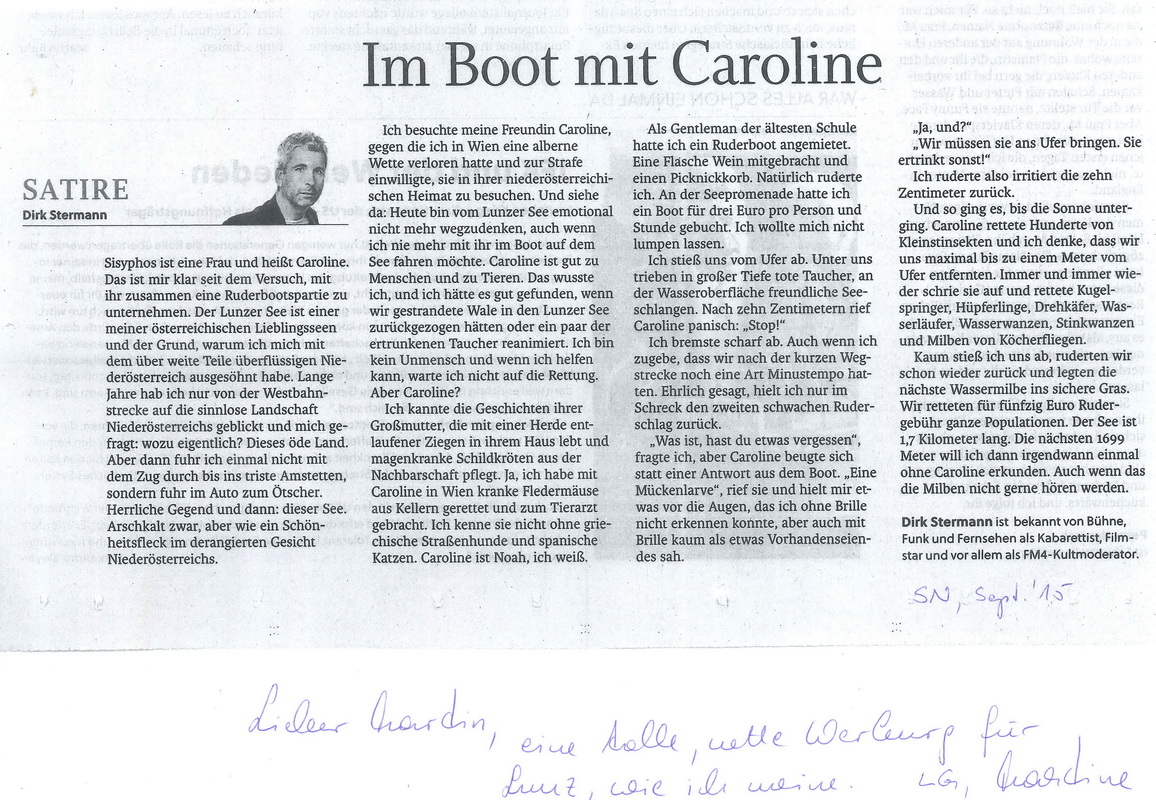 Im Boot mit Caroline
SATIRE
Dirk Stermann
Sisyphos ist eine Frau und heißt Caroline.
Das ist mir klar seit dem Versuch, mit
ihr zusammen eine Ruderbootspartie zu
unternehmen. Der Lunzer See ist einer
meiner österreichischen Lieblingsseen
und der Grund, warum ich mich mit
dem über weite Teile überflüssigen Nie-
derösterreich ausgesöhnt habe. Lange
Jahre hab ich nur von der Westbahn-
strecke auf die sinnlose Landschaft
Niederösterreichs geblickt und mich ge-
fragt: wozu eigentlich? Dieses öde Land.
Aber dann fuhr ich einmal nicht mit
dem Zug durch bis ins triste Amstetten,
sondern fuhr im Auto zum Ötscher.
Herrliche Gegend und dann: dieser See.
Arschkalt zwar, aber wie ein Schön-
heitsfleck im derangierten Gesicht
Niederösterreichs.
Ich besuchte meine Freundin Caroline,
gegen die ich in Wien eine alberne
Wette verloren hatte und zur Strafe
einwilligte, sie in ihrer niederösterreichi-
schen Heimat zu besuchen. Und siehe
da: Heute bin vom Lunzer See emotional
nicht mehr wegzudenken, auch wenn
ich nie mehr mit ihr im Boot auf dem
See fahren möchte. Caroline ist gut zu
Menschen und zu Tieren. Das wusste
ich, und ich hätte es gut gefunden, wenn
wir gestrandete Wale in den Lunzer See
zurückgezogen hätten oder ein paar der
ertrunkenen Taucher reanimiert. Ich bin
kein Unmensch und wenn ich helfen
kann, warte ich nicht auf die Rettung.
Aber Caroline?
Ich kannte die Geschichten ihrer
Großmutter, die mit einer Herde ent-
laufener Ziegen in ihrem Haus lebt und
magenkranke Schildkröten aus der
Nachbarschaft pflegt. Ja, ich habe mit
Caroline in Wien kranke Fledermäuse
aus Kellern gerettet und zum Tierarzt
gebracht. Ich kenne sie nicht ohne grie-
chische Straßenhunde und spanische
Katzen. Caroline ist Noah, ich weiß.
Als Gentleman der ältesten Schule
hatte ich ein Ruderboot angemietet.
Eine Flasche Wein mitgebracht und
einen Picknickkorb. Natürlich ruderte
ich. An der Seepromenade hatte ich
ein Boot für drei Euro pro Person und
Stunde gebucht. Ich wollte mich nicht
lumpen lassen.
Ich stieß uns vom Ufer ab. Unter uns
trieben in großer Tiefe tote Taucher, an
der Wasseroberfläche freundliche See-
schlangen. Nach zehn Zentimetern rief
Caroline panisch: „Stop!“
Ich bremste scharf ab. Auch wenn ich
zugebe, dass wir nach der kurzen Weg-
strecke noch eine Art Minustempo hat-
ten. Ehrlich gesagt, hielt ich nur im
Schreck den zweiten schwachen Ruder-
schlag zurück.
„Was ist, hast du etwas vergessen“,
fragte ich, aber Caroline beugte sich
statt einer Antwort aus dem Boot. „Eine
Mückenlarve“, rief sie und hielt mir et-
was vor die Augen, das ich ohne Brille
nicht erkennen konnte, aber auch mit
Brille kaum als etwas Vorhandenseien-
des sah.
„Ja, und?“
„Wir müssen sie ans Ufer bringen. Sie
ertrinkt sonst!“
Ich ruderte also irritiert die zehn
Zentimeter zurück.
Und so ging es, bis die Sonne unter-
ging. Caroline rettete Hunderte von
Kleinstinsekten und ich denke, dass wir
uns maximal bis zu einem Meter vom
Ufer entfernten. Immer und immer wie-
der schrie sie auf und rettete Kugel-
springer, Hüpferlinge, Drehkäfer, Was-
serläufer, Wasserwanzen, Stinkwanzen
und Milben von Köcherfliegen.
Kaum stieß ich uns ab, ruderten wir
schon wieder zurück und legten die
nächste Wassermilbe ins sichere Gras.
Wir retteten für fünfzig Euro Ruder-
gebühr ganze Populationen. Der See ist
1,7 Kilometer lang. Die nächsten 1699
Meter will ich dann irgendwann einmal
ohne Caroline erkunden. Auch wenn das
die Milben nicht gerne hören werden.
Dirk Stermann ist bekannt von Bühne,
Funk und Fernsehen als Kabarettist, Film-
star und vor allem als FM4-Kultmoderator.
SN, Sept. '15
Lieber Martin,
eine tolle, nette Werbung für
Lunz, wie ich meine. LG, Martine